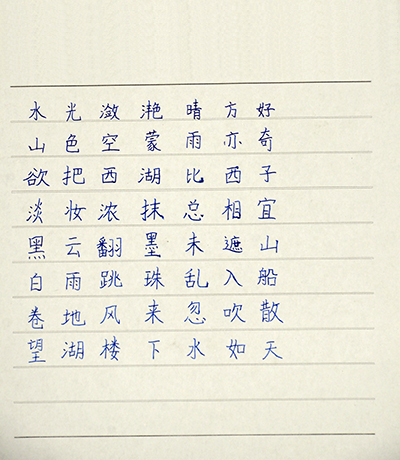 水光潋滟晴方好
山色空蒙雨亦奇
欲把西湖比西子
淡妆浓抹总相宜
黑云翻墨未遮山
白雨跳珠乱入船
卷地风来忽吹散
望湖楼下水如天